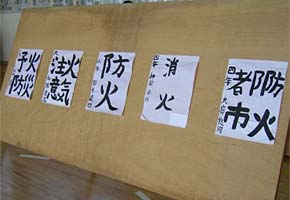 火災
予防
火気
注意
防火
消火
四年
防火
都市
四年